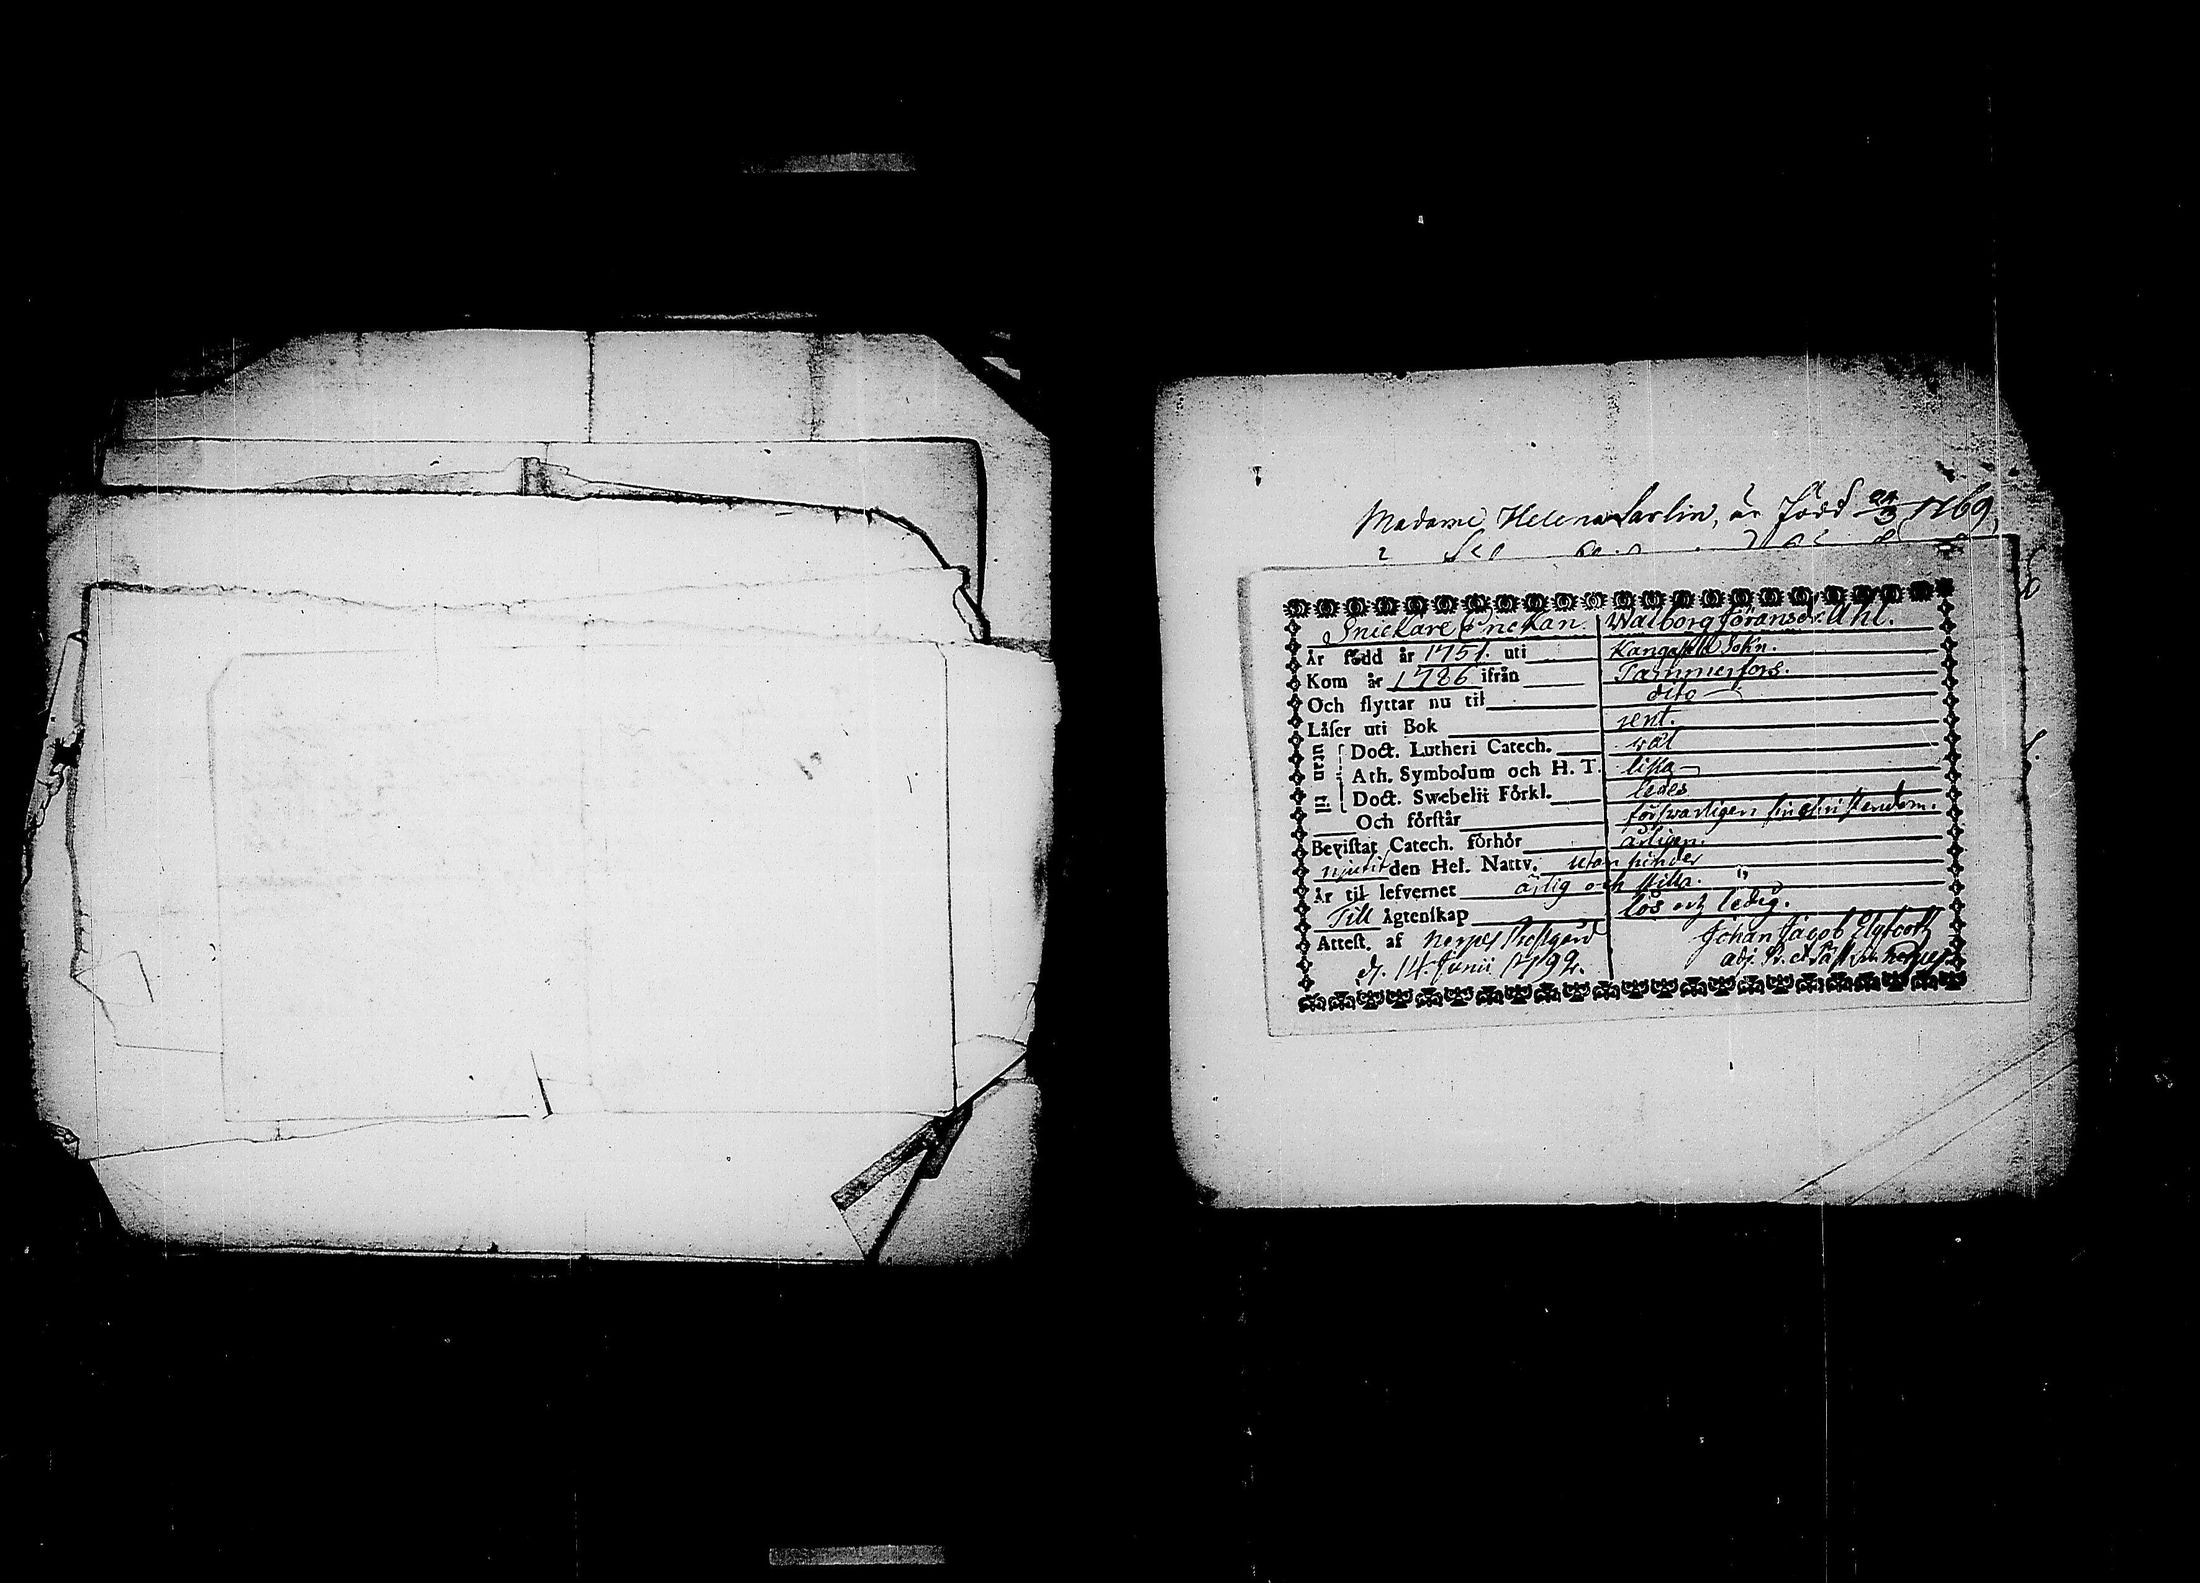 Madame Helena Sarlin, är född 24/3 1769,
Snickare Enckan Walborg Jöransdr. Uhl.
Är född år 1751. uti Kangasala Sokn.
Kom år 1786 ifrån Tammerfors.
Och flyttar nu til dito
Låser uti Bok rent.
utan til
Doct. Lutheri Catech. wäl
Ath. Symbolum och H. T. lika
Doct. Swebelii Förkl. ledes
Och förstår försvarligen sin christendom.
Bevistat Catech. förhör årligen.
njutit den Hel. Nattv. utan hinder
Är til lefvernet ärlig och stilla.
Till Ägtenskap lös och ledig.
Attest. af Nerpes Prostgård Johan Jacob
d. 14. Junii 1792. adj.